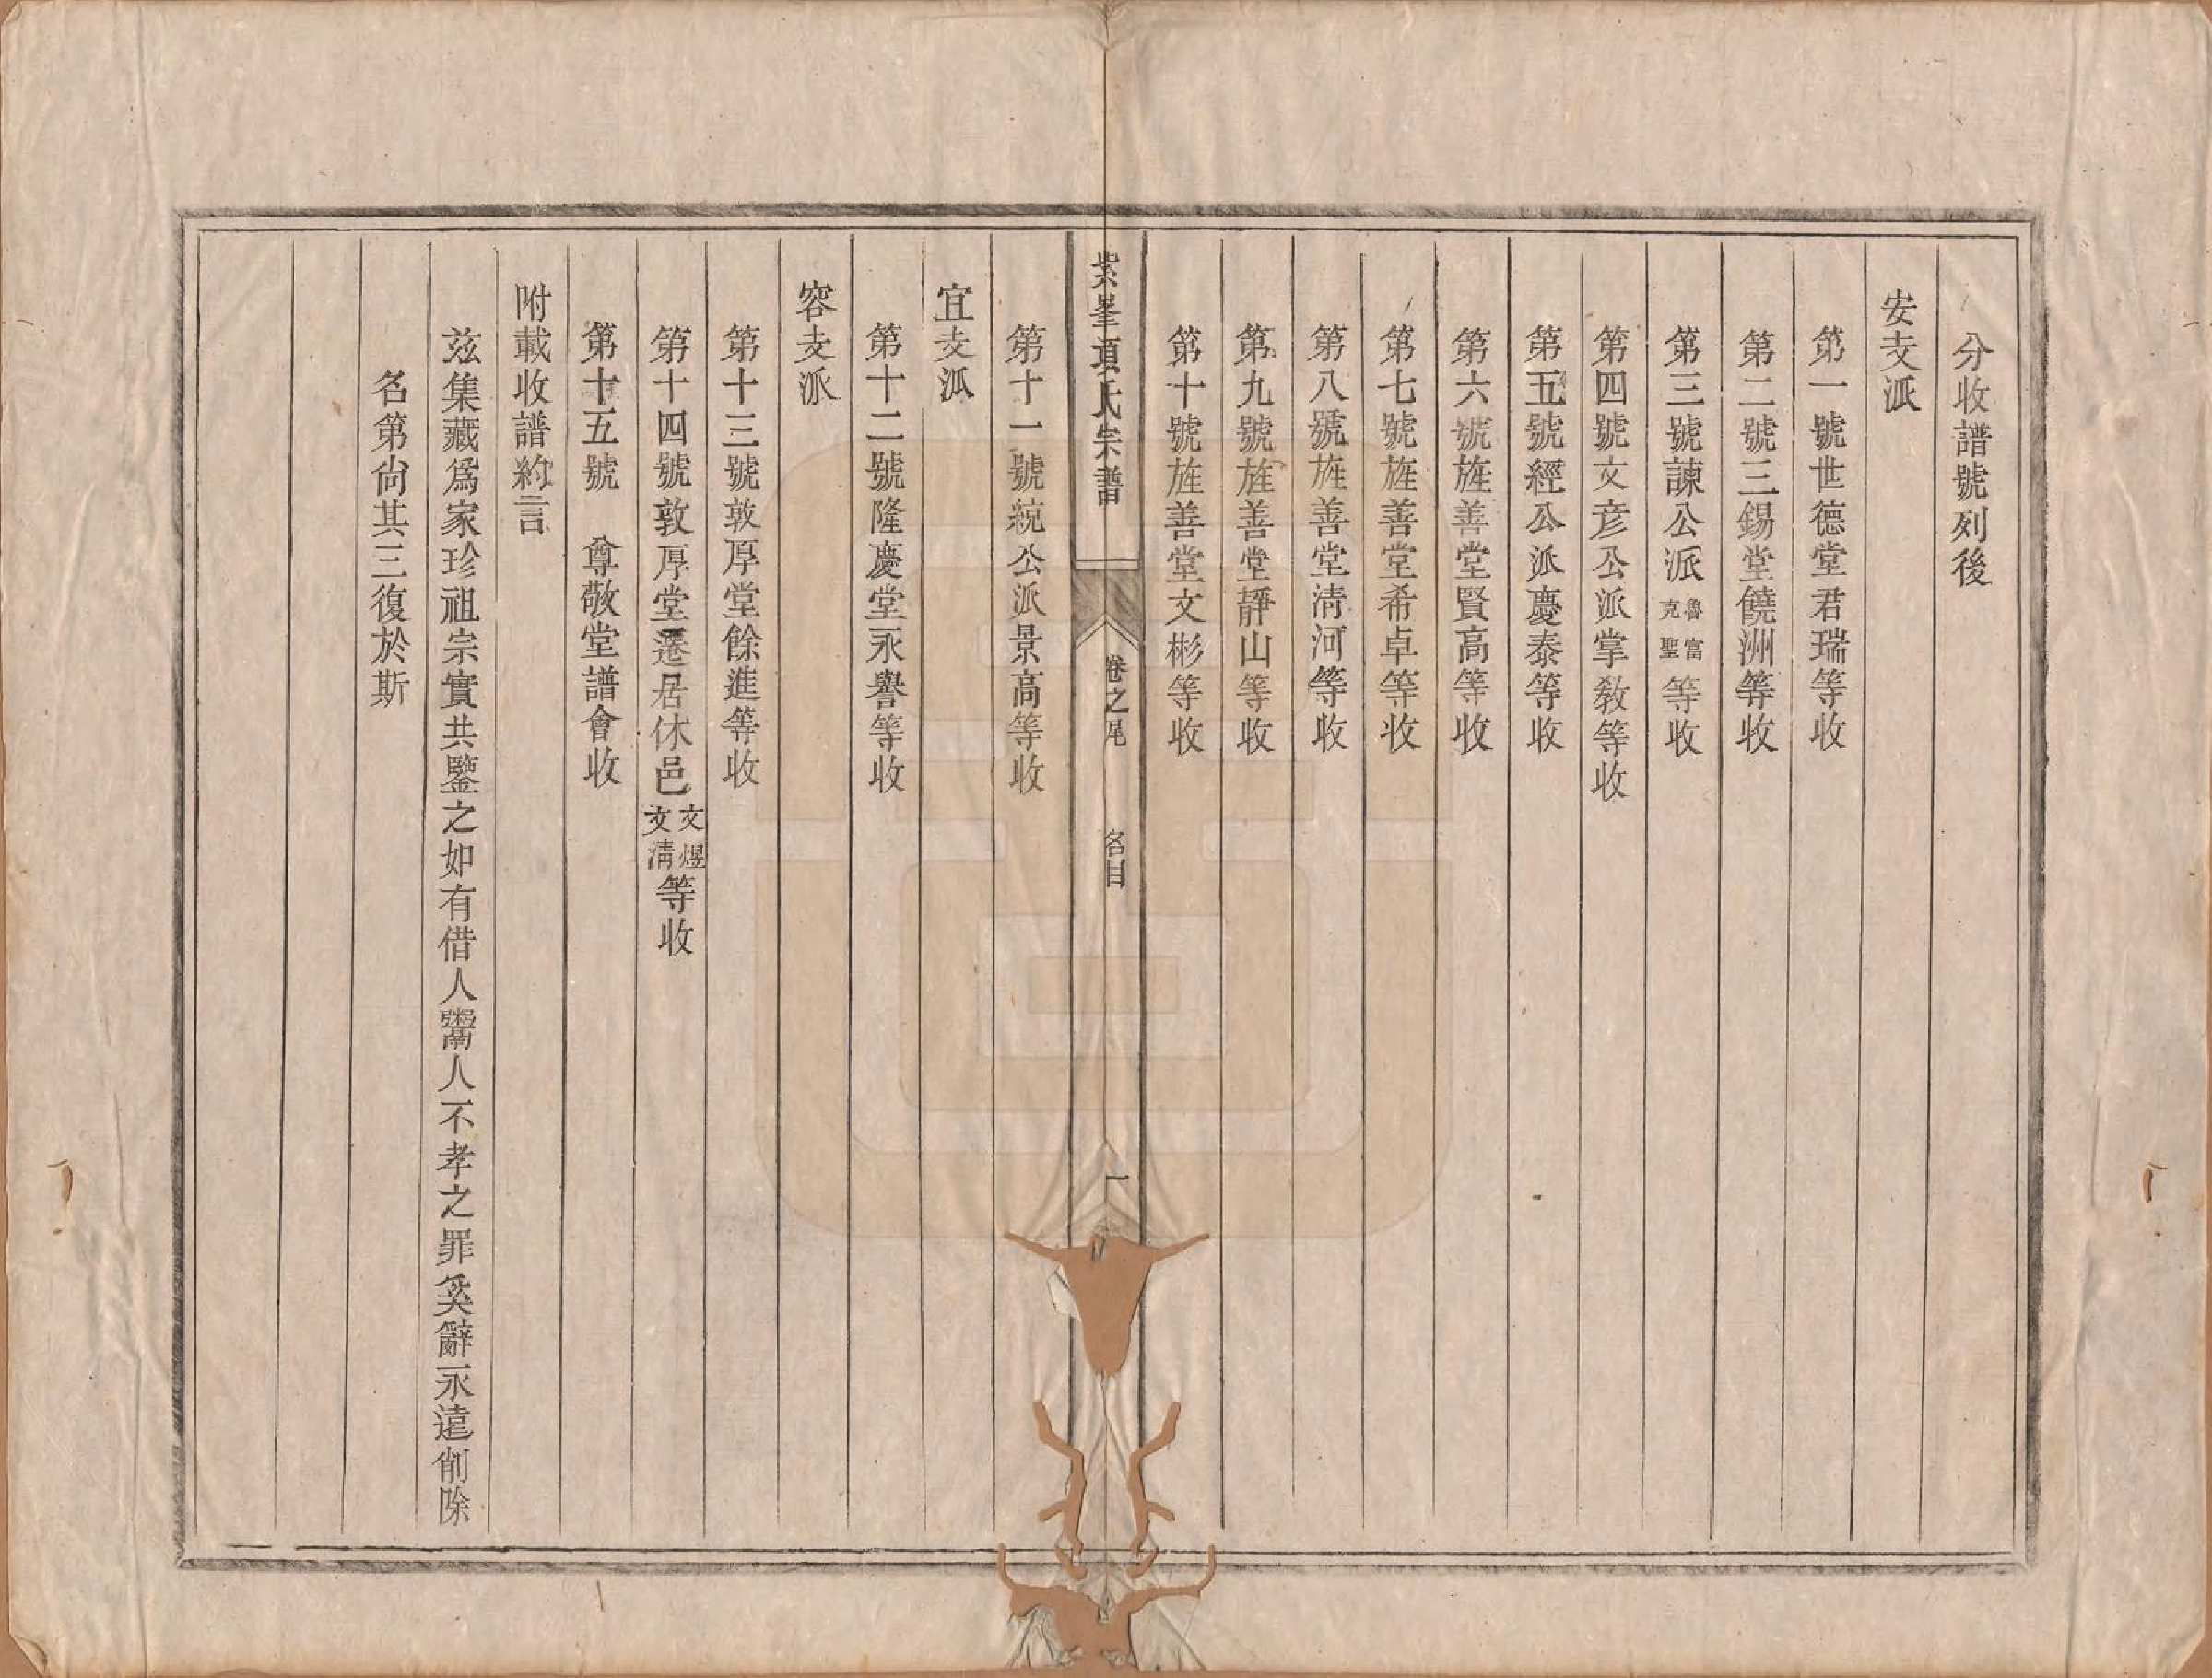 分收譜號列後
安支派
第一號世德堂君瑞等收
第二號三錫堂饒洲等收
第三號諫公派魯富克聖等收
第四號文彦公派掌敎等收
第五號經公派慶泰等收
第六號旌善堂賢高等收
第七號旌善堂希卓等收
第八號旌善堂淸河等收
第九號旌善堂靜山等收
第十號旌善堂文彬等收
紫峯項氏宗譜
卷之尾
名目
一
第十一號統公派景高等收
宜支派
第十二號隆慶堂永譽等收
容支派
第十三號敦厚堂餘進等收
第十四號敦厚堂遷居休邑文煜文淸等收
第十五號　尊敬堂譜會收
附載收譜約言
玆集藏爲家珍祖宗實共鑒之如有借人鬻人不孝之罪奚辭永遠削除
名第尙其三復於斯